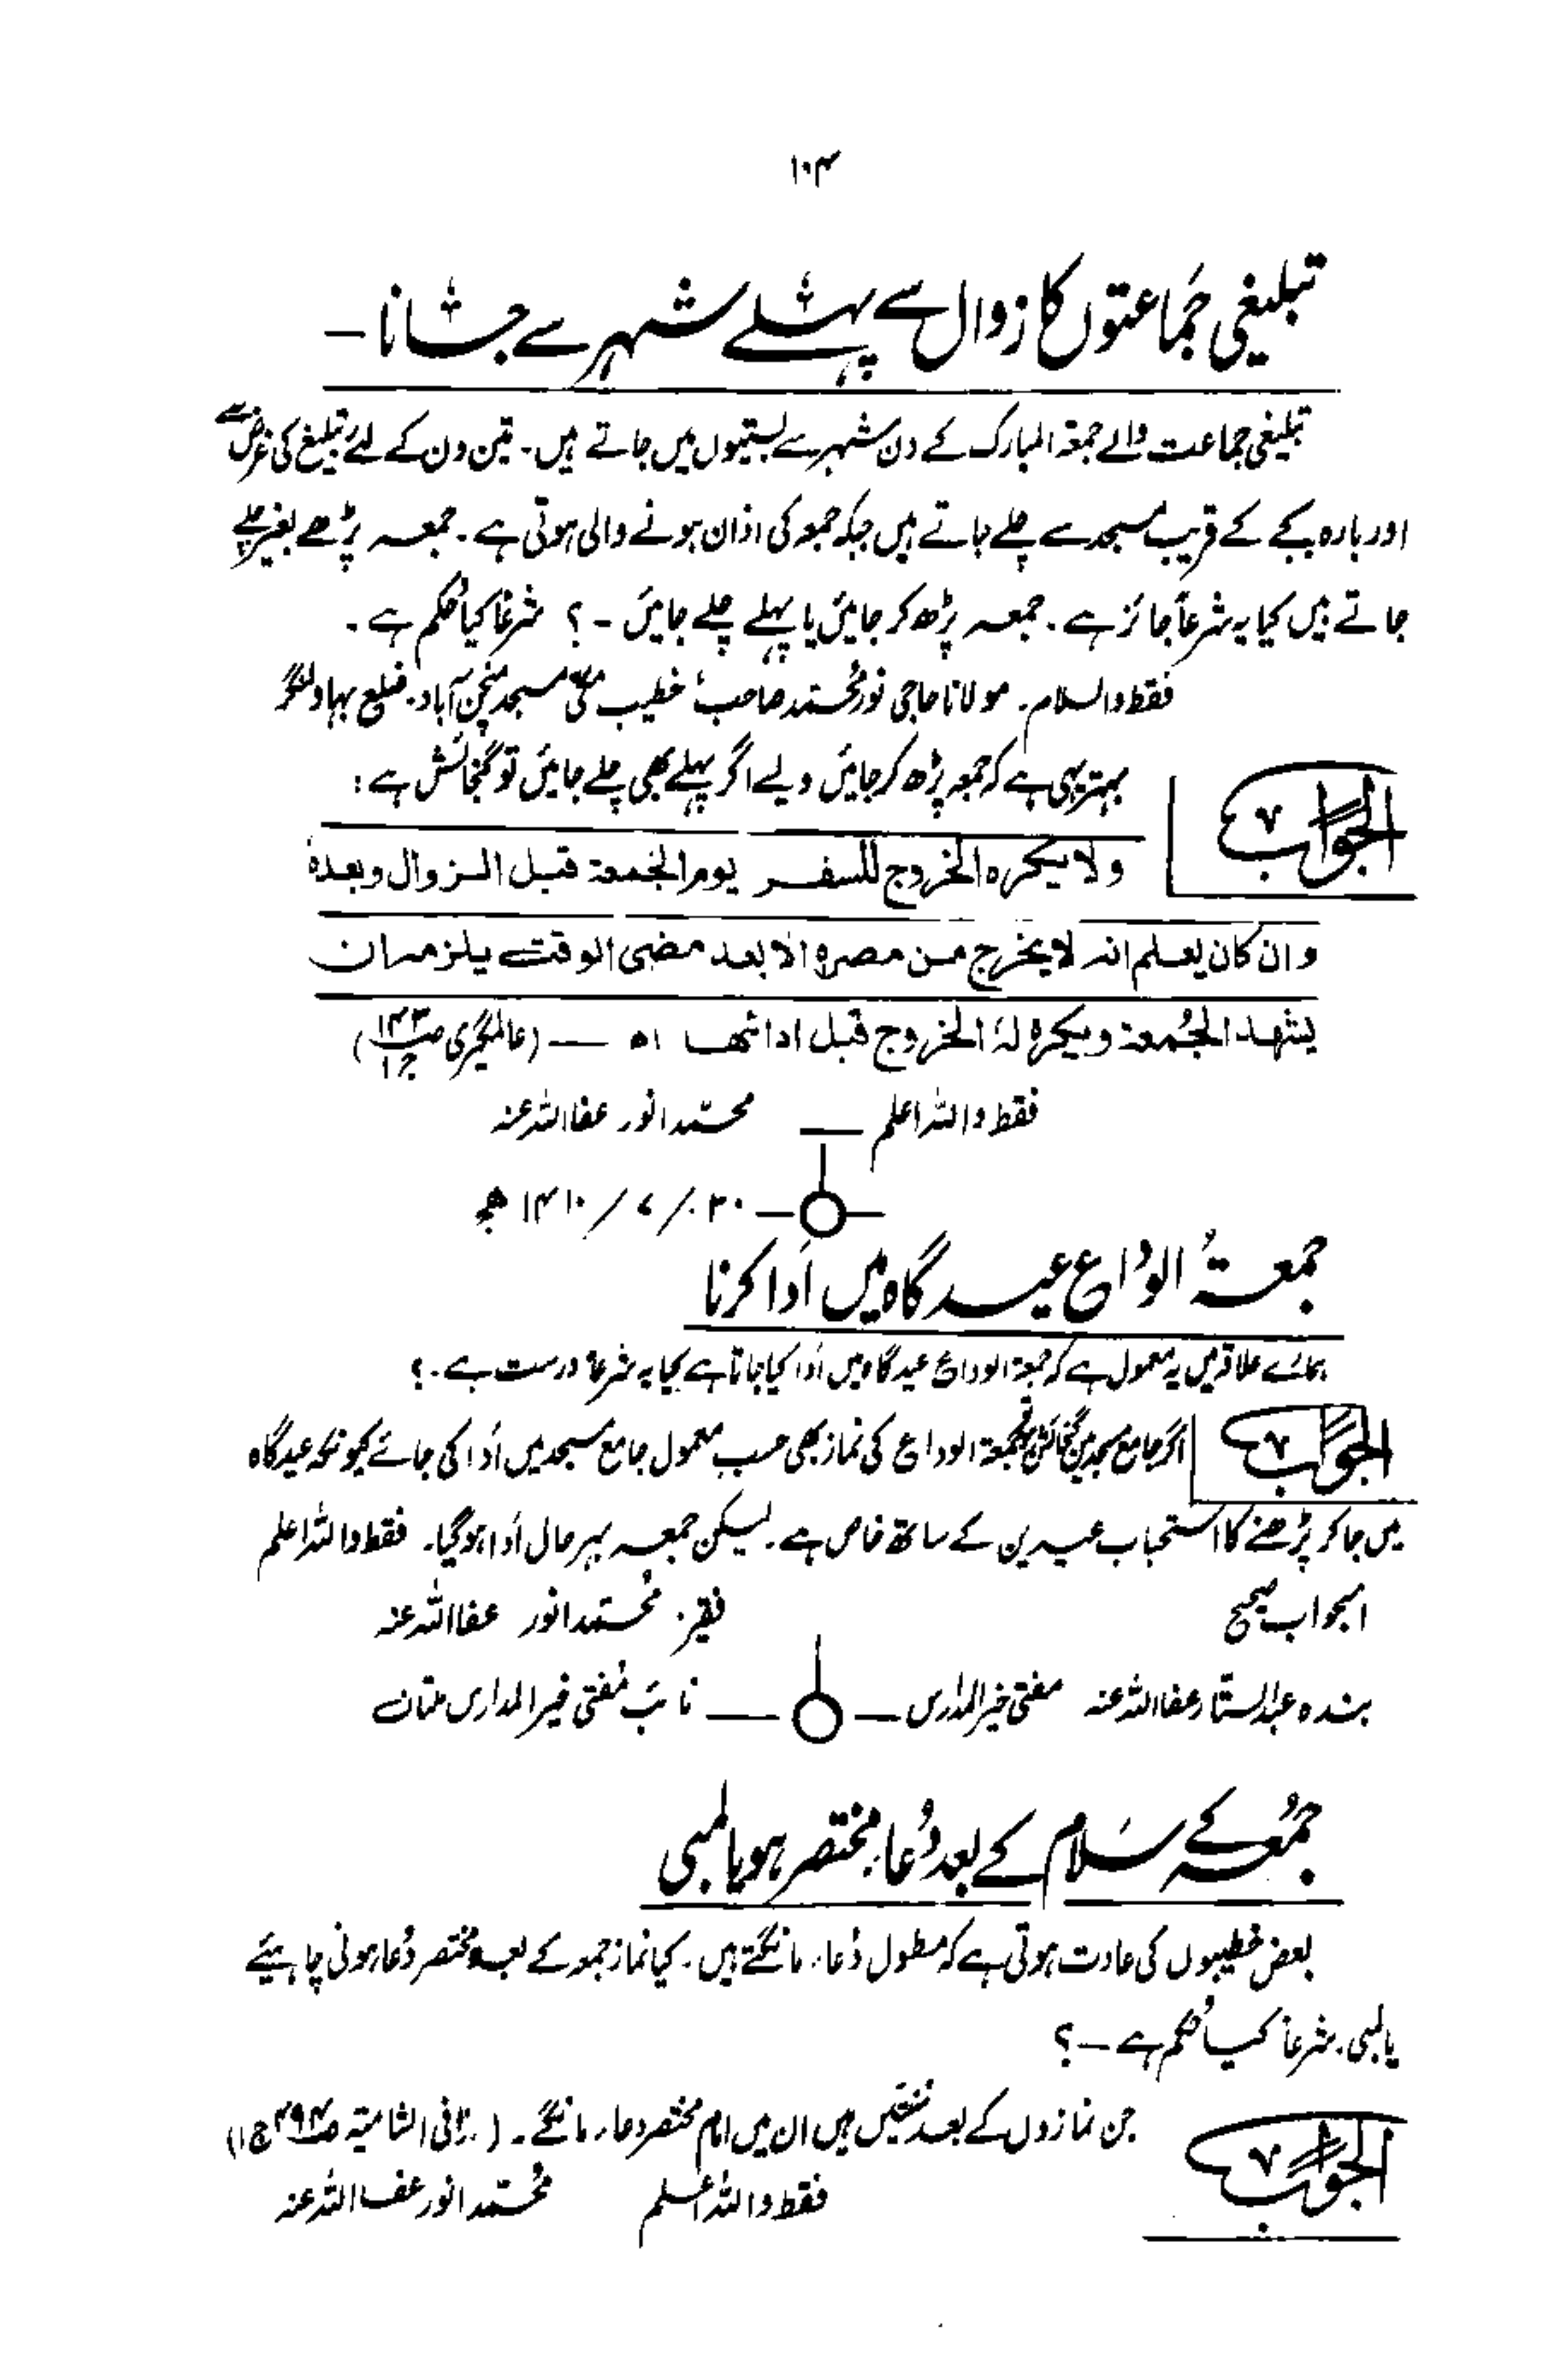 ۱۰۴
تبلیغی جماعتوں کا زوال سے پہلے شہر سے جانا ـ
تبلیغی جماعت والے جمعۃ المبارک کے دن شہر سے بستیوں میں جاتے ہیں۔ تین دن کے لئے تبلیغ کی غرض سے
اور بارہ بجے کے قریب مسجد سے چلے جاتے ہیں جبکہ جمعہ کی اذان ہونے والی ہوتی ہے۔ جمعہ پڑھے بغیر چلے
جاتے ہیں کیا یہ شرعاً جائز ہے۔ جمعہ پڑھ کر جائیں یا پہلے چلے جائیں ـ؟ شرعاً کیا حکم ہے۔
فقط والسلام۔ مولانا حاجی نور محمد صاحب خطیب مکی مسجد منچن آباد۔ ضلع بہاولنگر
الجواب بہتر یہی ہے کہ جمعہ پڑھ کر جائیں ویسے اگر پہلے بھی چلے جائیں تو گنجائش ہے:
ولا یکرہ الخروج للسفر یوم الجمعۃ قبل الزوال وبعدہ
وان کان یعلم انہ لا یخرج من مصرہ الا بعد مضی الوقت یلزمہ ان
یشهد الجمعۃ ویکرہ لہٗ الخروج قبل ادائها اہ — (عالمگیری ص۱۴۳ ج۱)
فقط واللہ اعلم — محمد انور عفا اللہ عنہ
۳۰ / ۷ / ۱۴۱۰ ھ
جمعۃ الوداع عیدگاہ میں ادا کرنا
ہمارے علاقہ میں یہ معمول ہے کہ جمعۃ الوداع عیدگاہ میں ادا کیا جاتا ہے کیا یہ شرعاً درست ہے۔؟
الجواب اگر جامع مسجد میں گنجائش ہو تو جمعۃ الوداع کی نماز بھی حسب معمول جامع مسجد میں ادا کی جائے کیونکہ عیدگاہ
میں جا کر پڑھنے کا استحباب عیدین کے ساتھ خاص ہے۔ لیکن جمعہ بہرحال ادا ہوگیا۔ فقط واللہ اعلم
الجواب صحیح فقیر محمد انور عفا اللہ عنہ
بندہ عبدالستار عفا اللہ عنہ مفتی خیرالمدارس — نائب مفتی خیرالمدارس ملتان
جمعہ کے سلام کے بعد دعاء مختصر ہو یا لمبی
بعض خطیبوں کی عادت ہوتی ہے کہ مطول دعاء مانگتے ہیں۔ کیا نماز جمعہ کے بعد مختصر دعاء ہونی چاہیئے
یا لمبی۔ شرعاً کیا حکم ہے ـ؟
الجواب جن نمازوں کے بعد سنتیں ہیں ان میں امام مختصر دعاء مانگے۔ (فی الشامیۃ ص۴۹۴ ج۱)
فقط واللہ اعلم محمد انور عفا اللہ عنہ